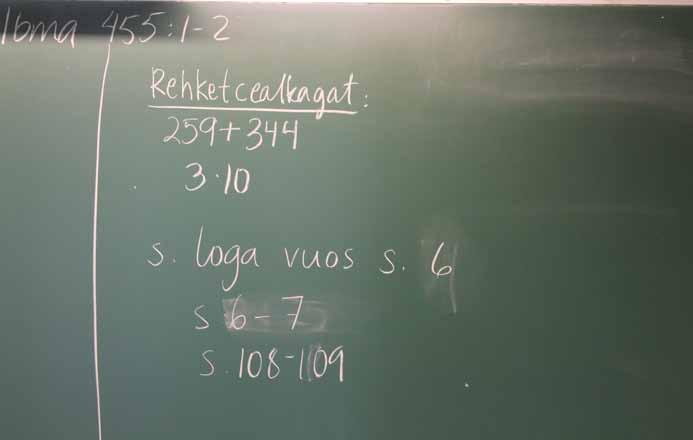 lbma 455:1-2
Rehketcealkagat:
259+344
3·10
s. loga vuos s. 6
s 6-7
s. 108-109